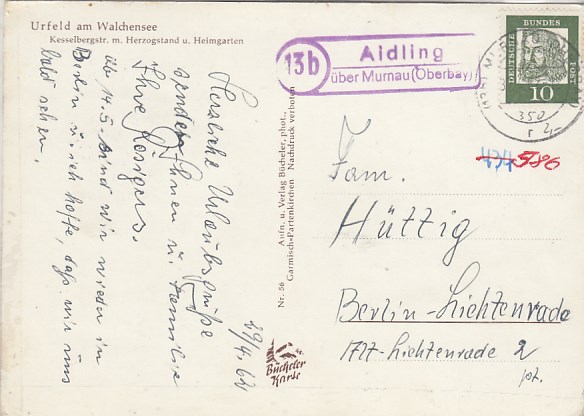 Urfeld am Walchensee
Kesselbergstr. m. Herzogstand u. Heimgarten
13b
Aidling
über Murnau (Oberbay)
DEUTSCHE BUNDESPOST
10
350
Herzliche Urlaubsgrüße
senden Ihnen u. Familie
Ihre
Ab 14.5. sind wir wieder in
Berlin u. ich hoffe, daß wir uns
bald sehen.
29/4. 62
Nr. 56 Aufn. u. Verlag Bücheler, phot.,
Garmisch-Partenkirchen Nachdruck verboten
Bücheler
Karte
586
Fam.
Hüttig
Berlin-Lichtenrade
Lichtenrade 2